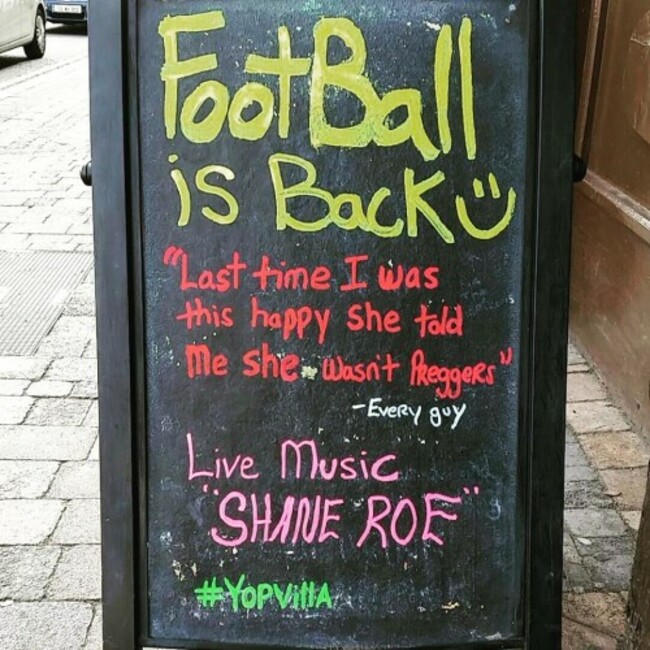 FootBall
is Back
"Last time I was
this happy she told
me she wasn't Preggers"
-Every guy
Live Music
"SHANE ROE"
#YOPVillA